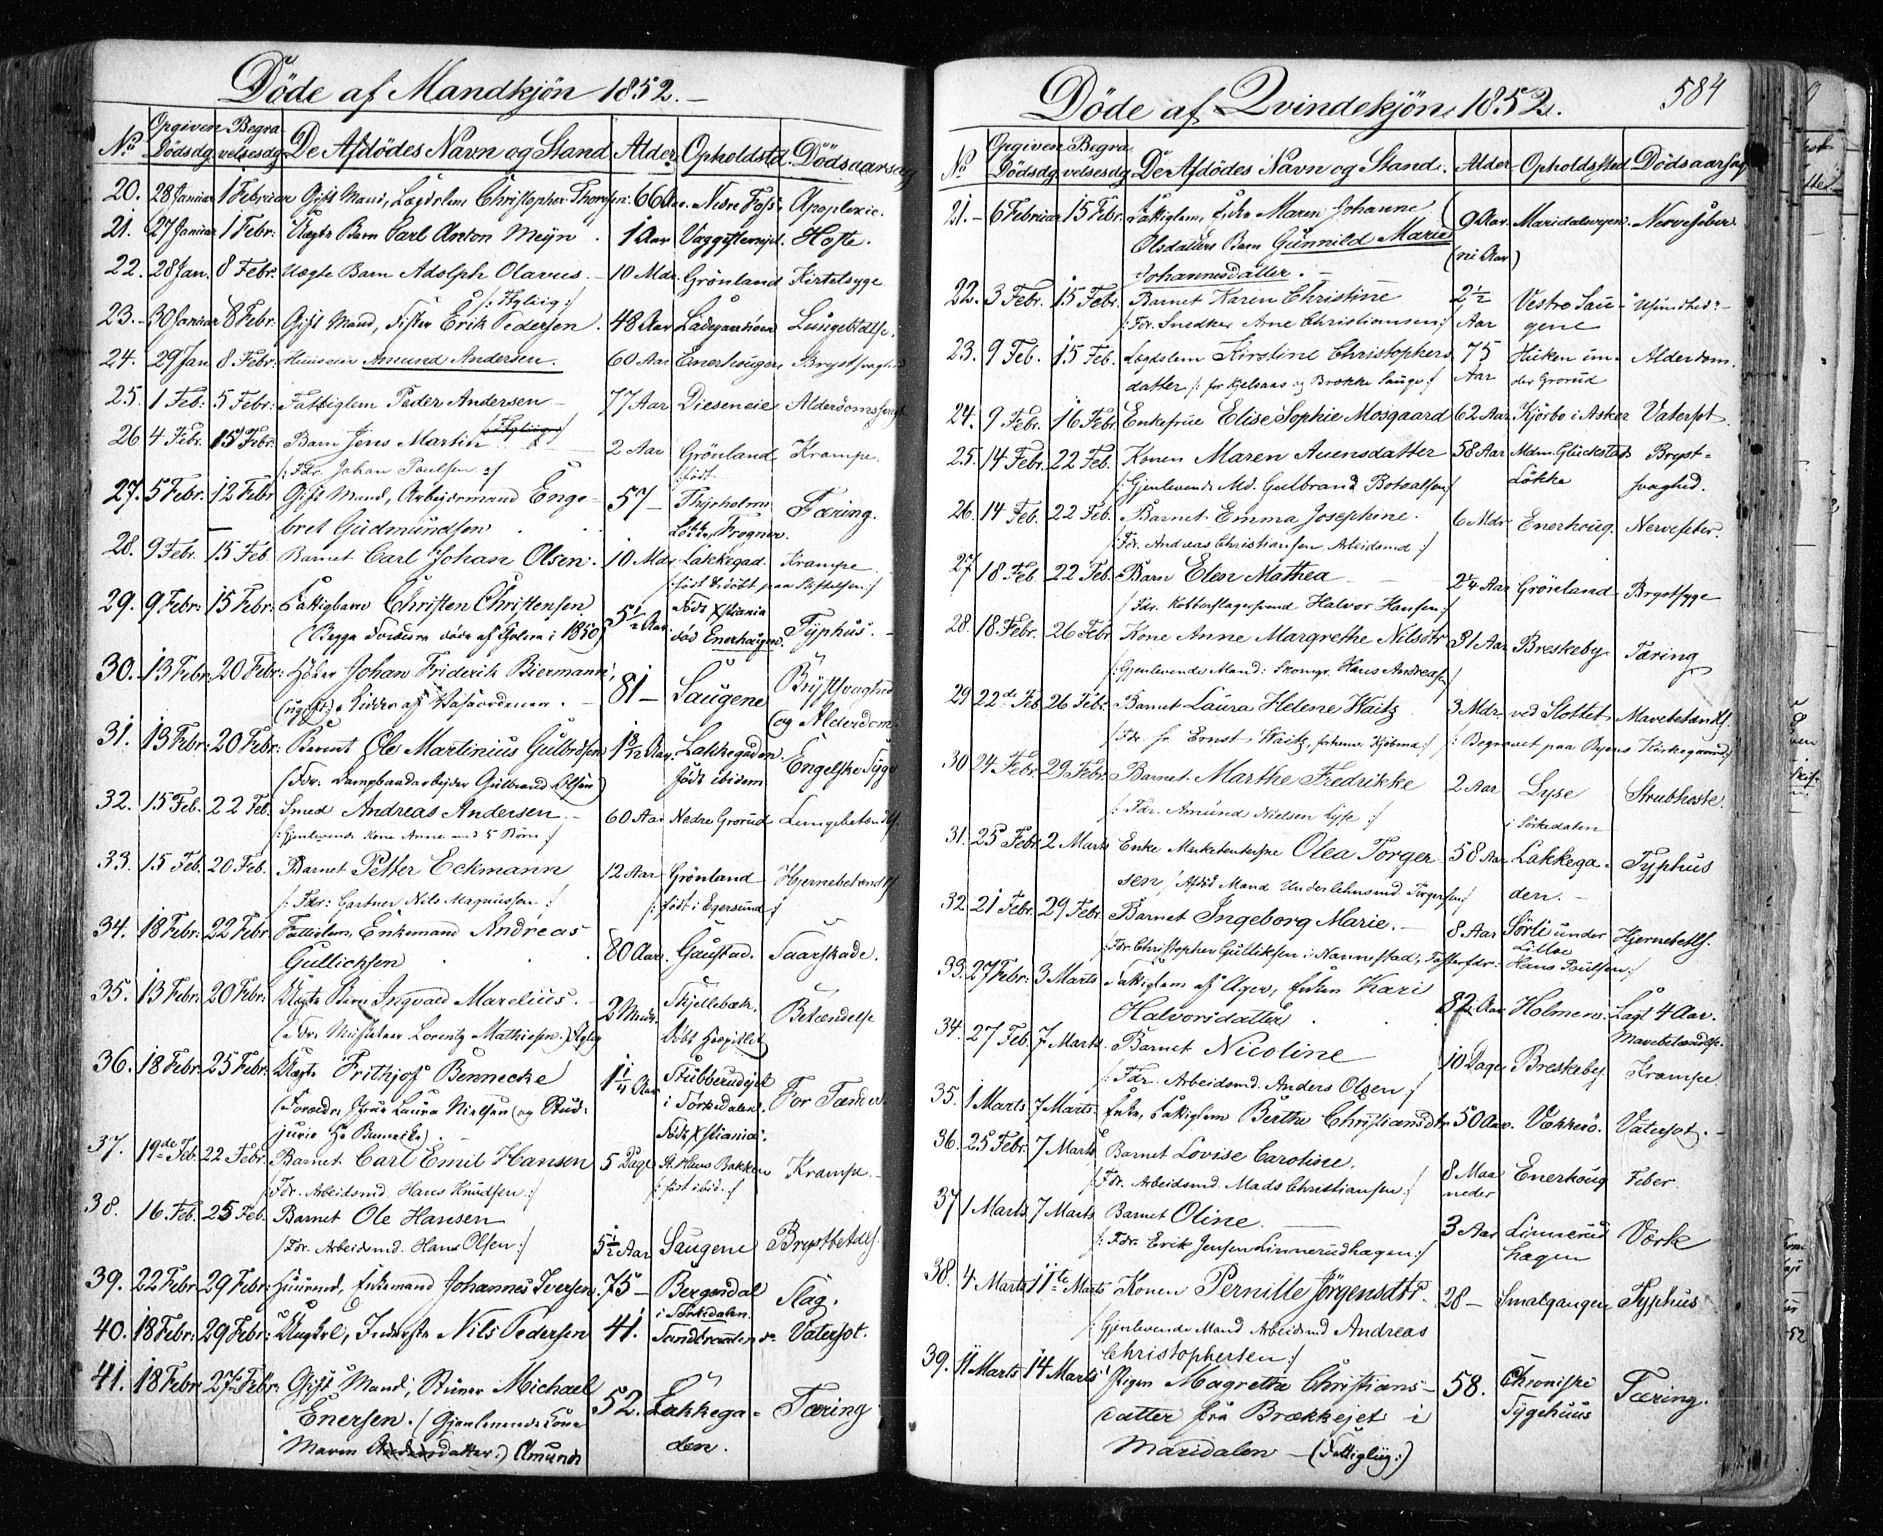 Döde af Mandkjön 1852.
No Opgiven Dödsdg. Begravelsesdg. De Afdödes Navn og Stand Alder Opholdstd Dödsaarsag
20. 28 Januar 1 Februar Gift Mand, Lægdslem Christopher Thorsen 66 Aar. Nedre Foss. Apoplexie.
21. 27 Januar 1 Febr: Uægte Barn Carl Anton Meijn 1 Aar Vaggestensjd. Hoste.
22. 28 Jan. 8 Febr. Uægte Barn Adolph Olavus 10 Mdr. Grönland Kirtelsyge
23. 30 Januar 8 Febr. Gift Mand, Fisker Erik Pedersen. 48 Aar Ladegaardsöen Lungebtdlse.
24. 29 Jan 8 Febr: Huusm Amund Andersen. 60 Aar Enerhougen Brystsvaghed
25. 1 Feb: 5 Febr: Fattiglem Peder Andersen 77 Aar Dieseneie Alderdomssvagh
26 4 Febr. 15 Febr. Barn Jens Martin 2 Aar Grönland Krampe.
/: Fdr. Johan Poulsen :/ födt
27. 5 Febr. 12 Febr Gift Mand, Arbeidsmand Enge- 57 – Thijsholms Tæring.
bret Gudmundsen Frogner.
28. 9 Febr. 15 Feb. Barnet Carl Johan Olsen. 10 Mdr Lakkegad. Krampe
/: födt & döbt paa Stiftelsen :/
29. 9 Febr: 15 Febr: Fattigbarn Christen Christensen 5 1/2 Aar. Födt Xstiania Typhus.
(Begge Forældre döde af Cholera i 1850) död Enerhaugen.
30. 13 Febr: 20 Febr: Höker Johan Friderik Biermann, 81 – Saugene Brystsvaghed
(ugift). Ridder af Vasaordenen. og Alderdom.
31. 13 Febr: 20 Febr: Barnet Ole Martinius Gulbrdsen 1 8/12 Aar. Lakkegaden. Engelske Syge
(Fdr. Dampbaadarbeider Gulbrand Olsen) födt ibidem
32. 15 Feb. 22 Feb. Smed Andreas Andersen. 60 Aar Nedre Grorud Lungebetændls.
/: Gjenlevende Kone Anne med 5 Börn :/
33. 15 Feb. 20 Feb. Barnet Petter Eckmann 12 Aar Grönland Hjernebetændls
/: Fdr: Gartner Nils Magnussen :/ /: födt i Egersund :/
34. 18 Febr: 22 Febr. Fattiglem, Enkemand Andreas 80 Aar. Gaustad. Saarskade.
Gullichsen
35. 13 Febr: 20 Febr: Uægte Barn Ingvald Marelius. 2 Mdr. Skjellebæk. Betændelse
(Fdr. Lorentz Mathiesen.) Döbt Hospitlet
36. 18 Febr: 25 Febr: Uægte Frithjof Bennecke 1 1/4 Aar. Stubberudejet For Tænder.
(Forældre Laura Nielsen og Stud. i Sörkedalen.
juris Bennecke). födt Xstiania.
37. 19de Feb. 22 Febr. Barnet Carl Emil Hansen 5 Dage St. Hans Bakken Krampe
/: Fdr. Arbeidsmd. Hans Knudsen :/ /: födt ibid. :/
38. 16 Feb. 25 Feb. Barnet Ole Hansen 5 1/2 Aar Saugene Brystbetdls.
/: Fdr. Arbeidsmd. Hans Olsen :/
39. 22 Febr. 29 Febr: Huusmd, Enkemand Johannes Iversen 75 – Bergendal Slag.
i Sörkedalen
40. 18 Febr: 29 Febr: Ungkl, Inderste Nils Pedersen 41. Sandbraaten do Vatersot.
41. 18 Febr. 27 Febr. Gift Mand, Michael 52. Lakkega- Tæring
Enersen. /: Gjenlevende Kone den.
Maren Andersdatter :/ Amunds
Döde af Qvindekjön 1852. 584
No Opgiven Dödsdg. Begravelsesdg De Afdödes Navn og Stand. Alder Opholdssted Dödsaarsag
21. 6 Februar 15 Febr. Fattiglem, Enke Maren Johanne 9 Aar Maridalsvejen. Nervefeber
Olsdatters Barn Gunnild Marie (ni Aar)
Johannesdatter.
22. 3 Febr. 15 Febr. Barnet Karen Christine 2 1/2 Aar Vestre Sau- Usundhed.
/: Fdr. Snedker Arne Christiansen :/ gene
23. 9 Feb. 15 Feb. Lægdslem Kirstine Christophers 75 Aar Huken un- Alderdom.
datter /: for Kjelsaas og Brække Sauge :/ der Grorud
24. 9 Febr. 16 Febr. Enkefrue Elise Sophie Mosgaard 62 Aar Kjörbo i Asker Vatersot.
25. 14 Febr. 22 Feb. Konen Maren Auensdatter 58 Aar Mdm. Glückstad Bryst-
/: Gjenlevende Md. Gulbrand Botolfsen :/ Lökke svaghed.
26. 14 Feb. 22 Feb. Barnet Emma Josephine. 6 Mdr. Enerhoug. Nervefeber.
/: Fdr. Andreas Christiansen Arbeidsmd :/
27 18 Feb. 22 Feb. Barn Elen Mathea 2 1/4 Aar Grönland Brystsyge
/: Fdr. Kobberslagersvend Halvor Hansen :/
28. 18 Febr. 26 Febr Kone Anne Margrethe Nilsdtr 31 Aar Breskeby Tæring
/: Gjenlevende Mand: Skomgr. Hans Andreasen :/
29 22de Feb 26 Febr. Barnet Laura Helene Waitz 3 Mdr. ved Slottet Mavebetændls.
/: Fdr. Hr Ernst Waitz, forhenv. Kjöbmd :/ /: Begravet paa Byens Kirkegaard :/
30 24 Febr. 29 Febr. Barnet Marthe Fredrikke 2 Aar Lyse Strubhoste.
/: Fdr. Amund Nielsen Lyse :/ i Sörkedalen
31. 25 Febr. 2 Marts Enke Marketenterske Olea Torger- 58 Aar Lakkega- Typhus
sen, /: Afdöd Mand Underlehnsmd. Torgersen :/ den.
32 21 Febr. 29 Febr. Barnet Ingeborg Marie. 8 Aar Sörli under Hjernebetls.
/: Fdr. Christopher Gulliksen i Nannestad, Fosterfdr: Hans Poulsen :/ Lilloe
33. 27 Febr: 3 Marts Fattiglem af Ager, Enken Kari 82 Aar Holmen. Lagt 4 Aar.
Halvorsdatter Mavebetændelse.
34. 27 Feb. 7 Marts. Barnet Nicoline 10 Dage Breskeby. Krampe
/: Fdr. Arbeidsmd. Anders Olsen :/
35. 1 Marts 7 Marts. Enke, Fattiglem Berthe Christiansdtr. 50 Aar. Vækkerö. Vatersot.
36. 25 Febr. 7 Marts. Barnet Lovise Caroline. 8 Maaneder Enerhoug Feber
/: Fdr. Arbeidsmd. Mads Christiansen :/
37 1 Marts 7 Marts Barnet Oline. 3 Aar Linnerud Værk
/: Fdr. Erik Jensen Linnerudhagen :/ hagen
38. 4 Marts 11te Marts Konen Pernille Jörgensdtr. 28 – Smalgangen Typhus
/: Gjenlevende Mand Arbeidsmd Andreas
Christophersen :/
39. 11 Marts 14 Marts Pigen Magrethe Christians- 58. Chroniske Tæring.
datter fra Brækkejet i Sygehuus
Maridalen – (Fattiglig :)